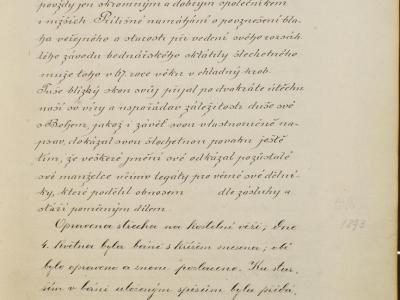 povždy jen skromným a dobrým společníkem
i nižších. Přílišné namáhání o povznešení bla-
ha veřejného a starosti při vedení svého rozsáh-
lého závodu bednářského sklátily šlechetného
muže toho v 67 roce věku v chladný hrob.
Tuše blízký skon svůj přijal po dvakráte útěchu
naší sv. víry a uspořádav záležitosti duše své
s Bohem, jakož i závěť svou vlastnoručně na-
psav, dokázal svou šlechetnou povahu ještě
tím, že veškeré jmění své odkázal pozůstalé
své manželce učiniv legáty pro věrné své dělní-
ky, které podělil obnosem dle zásluhy a
stáří poměrným dílem.
Opravena střecha na kostelní věži; dne
4. května byla báně s křížem snesena; obé
bylo opraveno a znovu pozlaceno. Ku star-
ším v báni uloženým spisům byla přidá-
1893